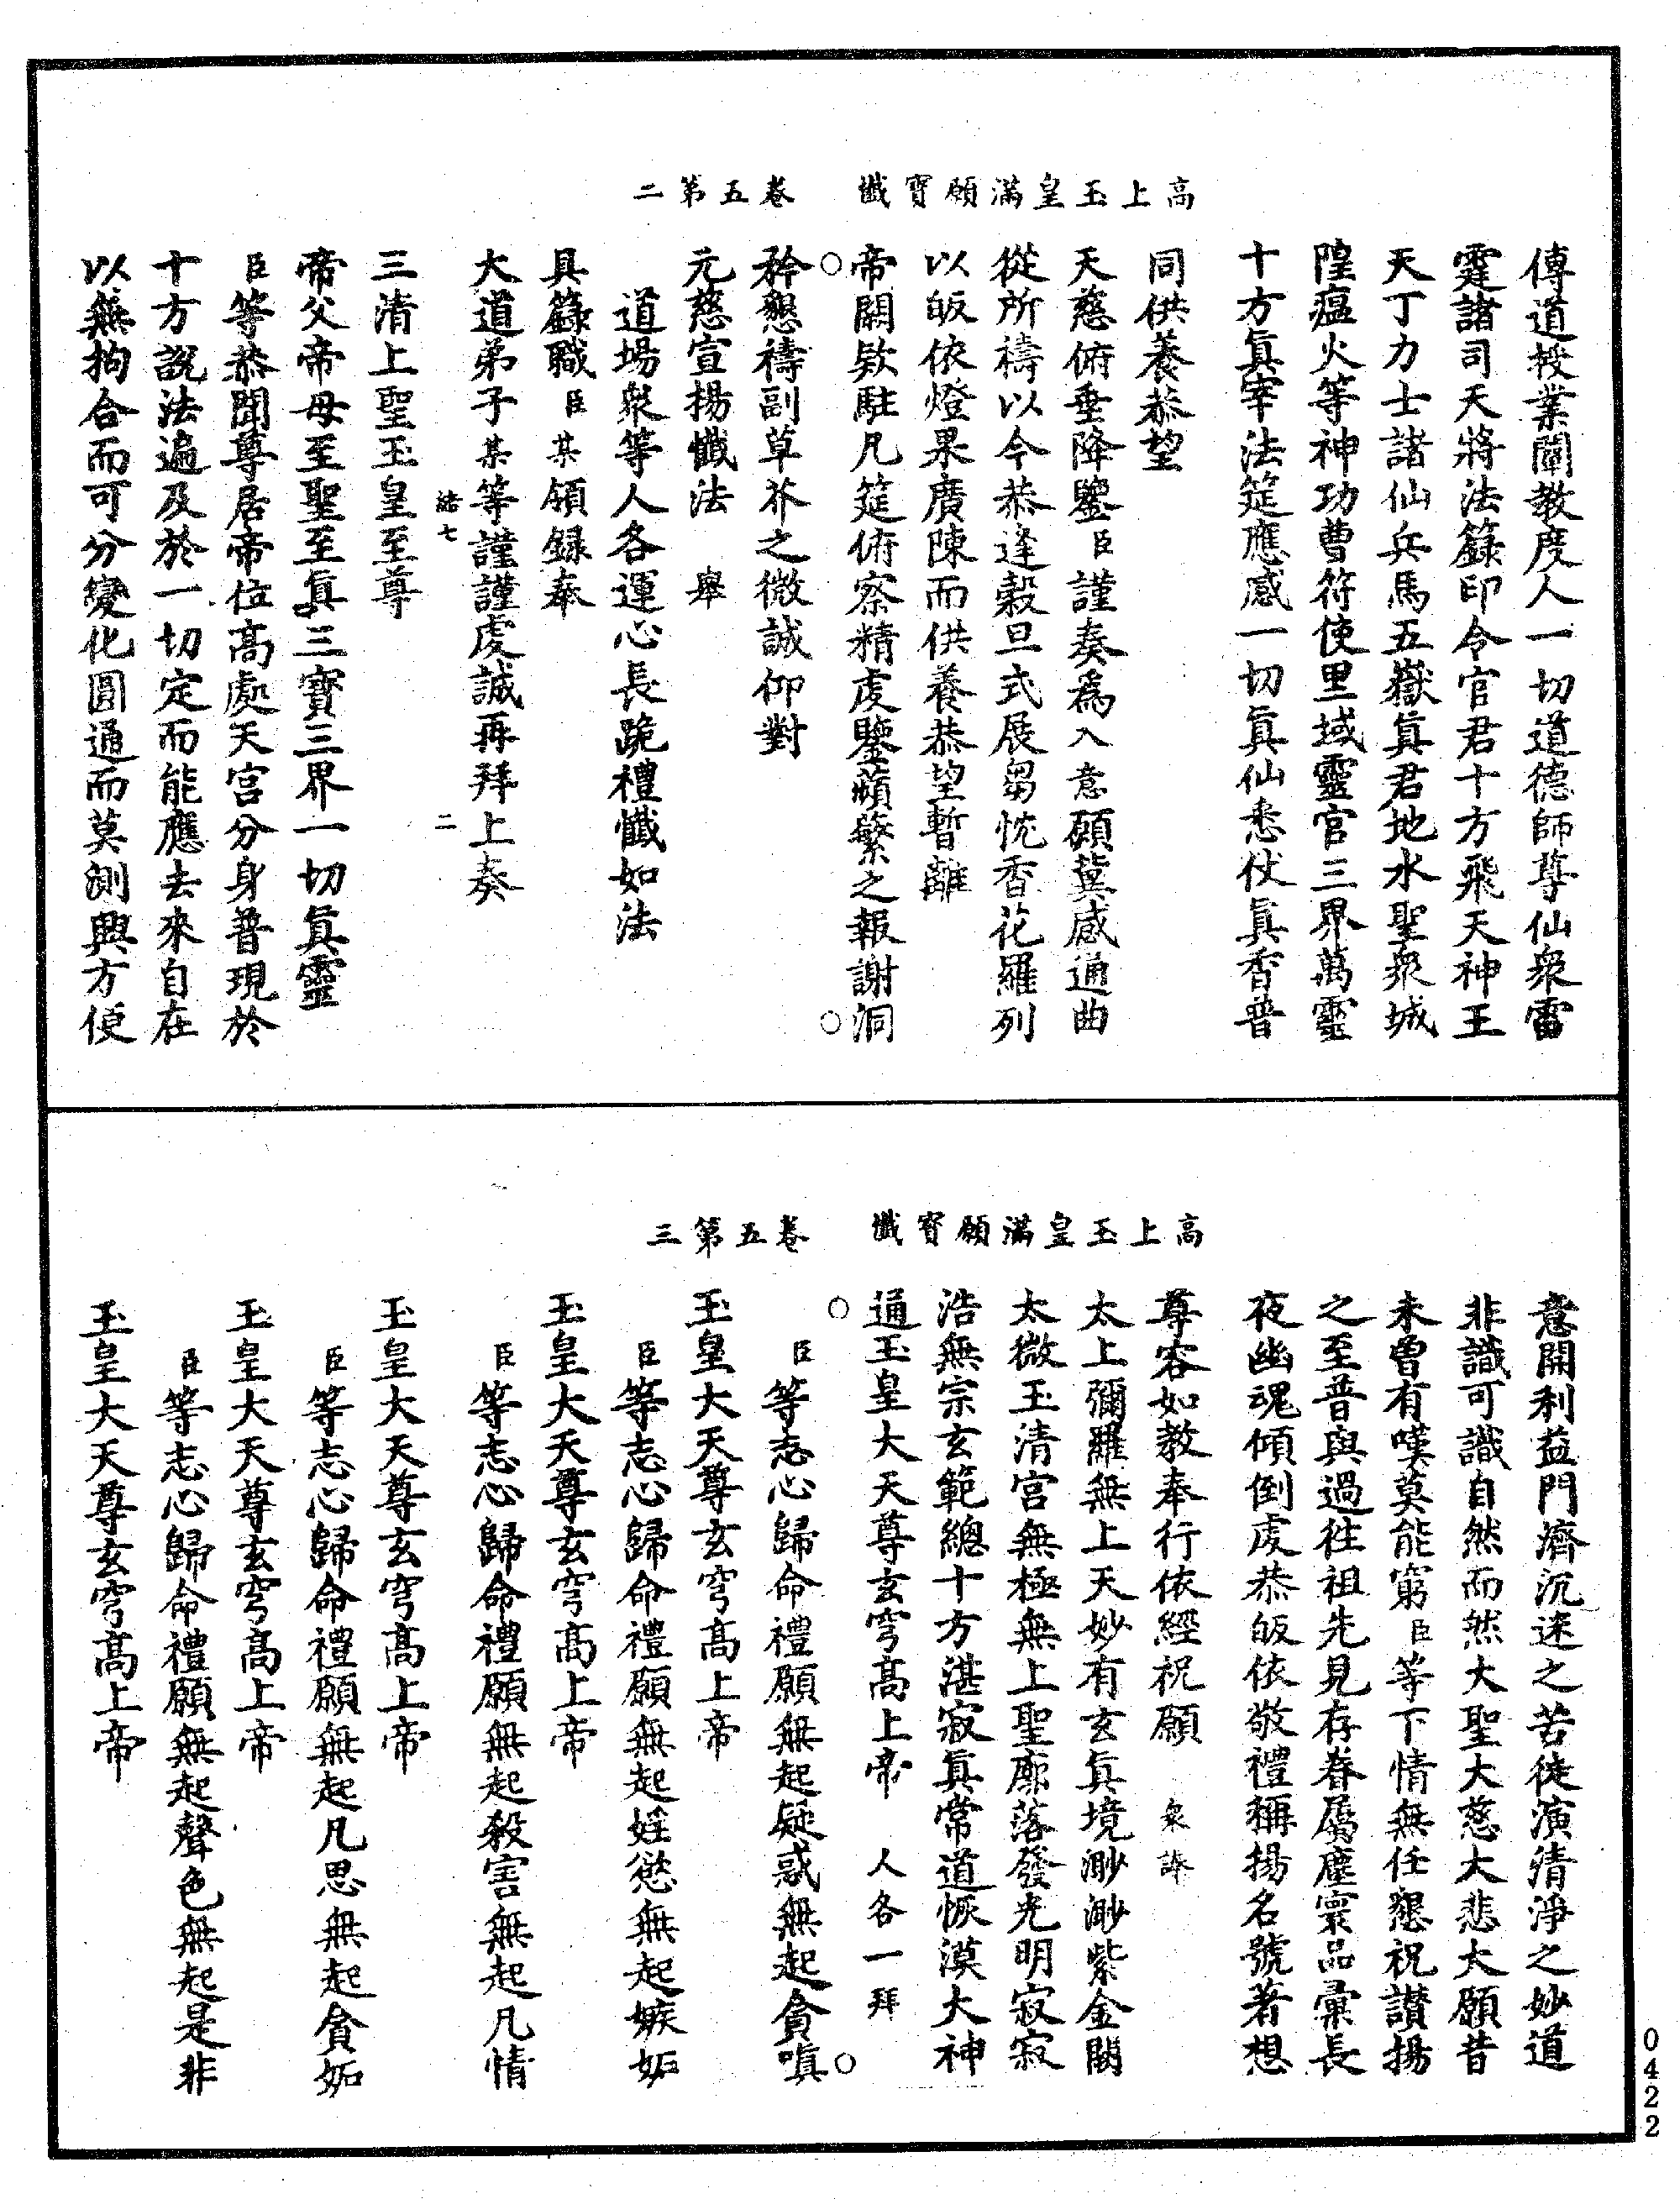 高上玉皇滿願寶懺　卷五第二
傳道授業闡教度人一切道德師尊仙衆雷
霆諸司天將法籙印令官君十方飛天神王
天丁力士諸仙兵馬五嶽眞君地水聖衆城
隍瘟火等神功曹符使里域靈官三界萬靈
十方眞宰法筵應感一切眞仙悉仗眞香普
同供養恭望
天慈俯垂降鑒臣謹奏爲入意願冀感通曲
從所禱以今恭逢穀旦式展芻忱香花羅列
以皈依燈果廣陳而供養恭望暫離
帝闕欵駐凡筵俯察精虔鑒蘋蘩之報謝洞
矜懇禱副草芥之微誠仰對
元慈宣揚懺法　舉
道場衆等人各運心長跪禮懺如法
具籙職臣某領録奉
大道弟子某等謹謹虔誠再拜上奏
二
三清上聖玉皇至尊
帝父帝母至聖至眞三寶三界一切眞靈
臣等恭聞尊居帝位高處天宫分身普現於
十方說法遍及於一切定而能應去來自在
以無拘合而可分變化圓通而莫測興方便
高上玉皇滿願寶懺　卷五第三
意開利益門濟沉迷之苦徒演清淨之妙道
非識可識自然而然大聖大慈大悲大願昔
未曽有嘆莫能窮臣等下情無任懇祝讃揚
之至普與過往祖先見存眷屬塵寰品彙長
夜幽魂傾倒虔恭皈依敬禮稱揚名號著想
尊容如教奉行依經祝願　衆誦
太上彌羅無上天妙有玄眞境渺渺紫金闕
太微玉清宫無極無上聖廓落發光明寂寂
浩無宗玄範總十方湛寂眞常道恢漠大神
通玉皇大天尊玄穹高上帝　人各一拜
臣等志心歸命禮願無起疑惑無起貪嗔
玉皇大天尊玄穹高上帝
臣等志心歸命禮願無起婬慾無起嫉妬
玉皇大天尊玄穹高上帝
臣等志心歸命禮願無起殺害無起凡情
玉皇大天尊玄穹高上帝
臣等志心歸命禮願無起凡思無起貪妬
玉皇大天尊玄穹高上帝
臣等志心歸命禮願無起聲色無起是非
玉皇大天尊玄穹高上帝
0422